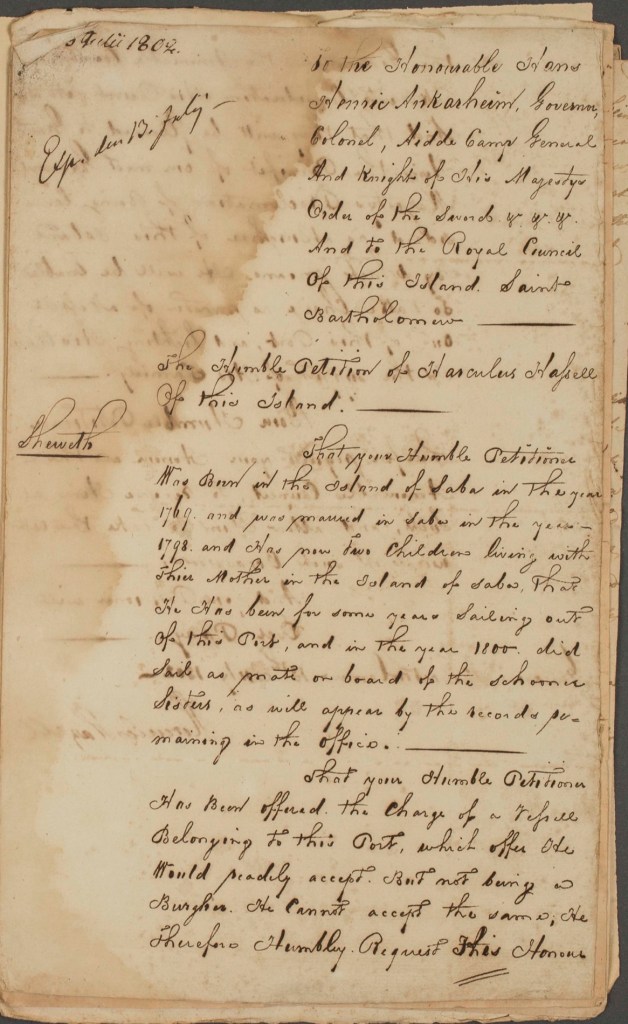 Julii 1802.
Exp. den 13. July
To the Honourable Hans
Henric Ankarheim, Governor,
Colonel, Aidde Camp General
And Knight of His Majestys
Order of the Sword &. &. &.
And to the Royal Council
Of this Island Saint
Bartholomew
The Humble Petition of Harculus Hassell
Of this Island.
Sheweth
That your Humble Petitioner
Was Born in the Island of Saba in the year
1769. and was married in Saba in the year
1798. and Has now two Children living with
Thier Mother in the Island of Saba, That
He Has been for some years Sailing out
Of this Port, and in the year 1800. did
Sail as mate on board of the schooner
Sisters, as will appear by the records re=
maining in the office.
That your Humble Petitioner
Has Been offered the Charge of a Vessell
Belonging to this Port, which offer He
Would readely accept. But not being a
Burgher. He Cannot accept the same, He
Therefore Humbley Request This Honour